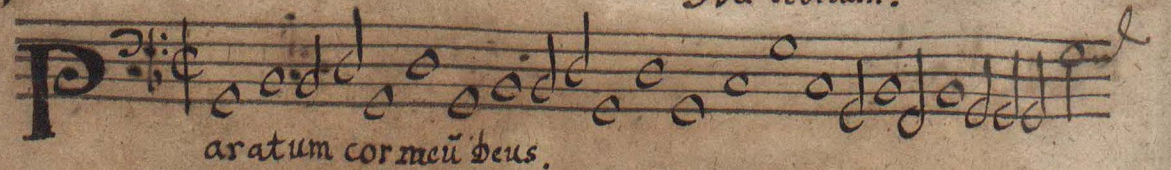 Paratum cor meū Deus.